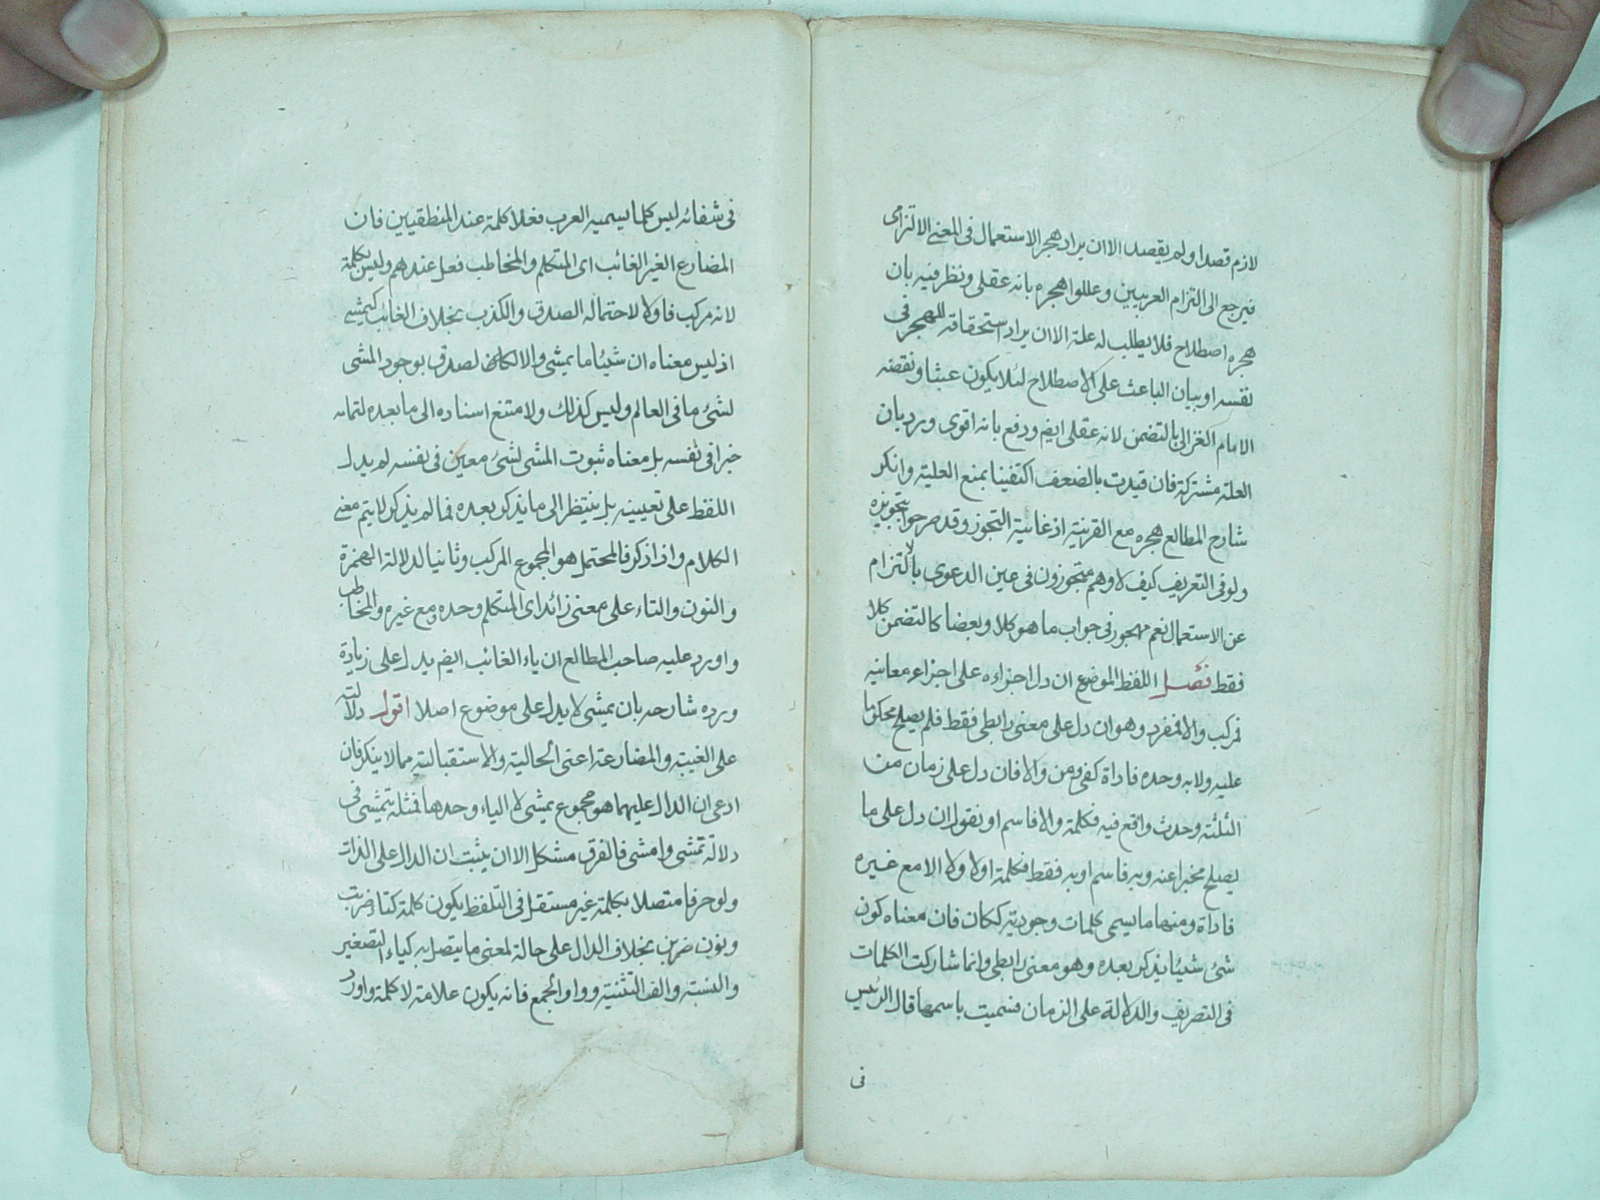 لازم قصدا ولم يقصد الا ان يراد هجر الاستعمال فى المعنى الالتزامى
فيرجع الى التزام العربيين وعللوا هجره بانه عقلى ونظر فيه بان
هجره اصطلاح فلا يطلب له علة الا ان يراد استحقاقه للهجر فى
نفسه او بيان الباعث على الاصطلاح لئلا يكون عبثا ونقضه
الامام الغزالى بالتضمن لانه عقلى ايضم ودفع بانه اقوى ويرد بان
العلة مشتركة فان قيدت بالضعف اكتفينا بمنع العلية وانكر
شارح المطالع هجره مع القرينة اذ غايية التجوز وقد صرحوا بتجويزه
ولو فى التعريف كيف لا وهم متجوزون فى عين الدعوى بالالتزام
عن الاستعمال نعم مهجور فى جواب ما هو كلا وبعضا كالتضمن كلا
فقط فصل اللفظ الموضوع ان دل اجزاءه على اجزاء معانيه
فمركب والا فمفرد وهو ان دل على معنى رابطى فقط فلم يصلح محكوما
عليه ولا به وحده فاداة كفى ومن والا فان دل على زمان من
الثلثة وحدث واقع فيه فكلمة والا فاسم او نقول ان دل على ما
يصلح مخبرا عنه وبه فاسم او به فقط فكلمة اولا ولا الا مع غيره
فاداة ومنها ما يسمى كلمات وجودية ككان فان معناه كون
شئ شيئا يذكر بعده وهو معنى رابطى وانما شاركت الكلمات
فى التصريف والدلالة على الزمان فسميت باسمها قال الرئيس
فى
فى شفائه ليس كلما يسميه العرب فعلا كلمة عند المنطقيين فان
المضارع الغير الغائب اى المتكلم والمخاطب فعل عندهم وليس بكلمة
لانه مركب فاولا لاحتماله الصدق والكذب بخلاف الغائب كيمشى
اذ ليس معناه ان شيئا ما يمشى والا لكان لصدق بوجود المشى
لشئ ما فى العالم وليس كذلك ولا متنع اسناده الى ما بعده لتمامه
خبرا فى نفسه بل معناه ثبوت المشى لشئ معين فى نفسه لم يدل
اللفظ على تعيينه بل ينتظر الى ما يذكر بعده فما لم يذكر لا يتم معنى
الكلام واذا ذكر فالمحتمل هو المجموع المركب وثانيا لدلالة الهمزة
والنون والتاء على معنى زائد اى المتكلم وحده ومع غيره والمخاطب
واورد عليه صاحب المطالع ان ياء الغائب ايضم يدل على زيادة
ورده شارحه بان يمشى لا يدل على موضوع اصلا اقول دلالته
على الغيبة والمضارعة اعنى الحالية والاستقبالية مما لا ينكر فان
ادعى ان الدال عليهما هو مجموع يمشى لا الياء وحدها فمثله يتمشى فى
دلالة تمشى وامشى فالفرق مشكل الا ان يثبت ان الدال على الذات
ولو حرفا متصلا بكلمة غير مستقل فى التلفظ يكون كلمة كتا ضربت
ونون ضربن بخلاف الدال على حالة لمعنى ما يتصل به كياء التصغير
والنسبة والف التثنية وواو الجمع فانه يكون علامة لا كلمة واورد